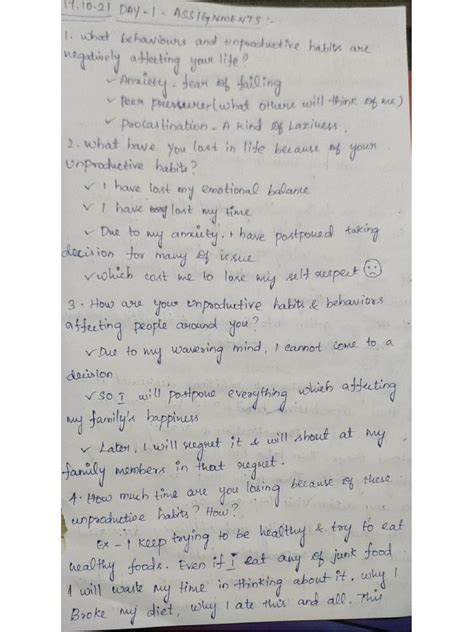 14.10.21 DAY-1 - ASSIGNMENTS :-
1. what behaviours and unproductive habits are
negatively affecting your life?
✓ Anxiety - fear of failing
✓ Peer pressurer (what others will think of me)
✓ Procastination - A kind of Laziness.
2. what have you lost in life because of your
unproductive habits?
✓ I have lost my emotional balance
✓ I have lost my time
✓ Due to my anxiety, I have postponed taking
decision for many of issue
✓ which cost me to lose my self respect ☹
3. How are your unproductive habits & behaviors
affecting people around you?
✓ Due to my wavering mind, I cannot come to a
decision
✓ So I will postpone everything which affecting
my family's happiness
✓ Later, I will regret it & will shout at my
family members in that regret.
4. How much time are you losing because of these
unproductive habits? How?
Ex - I keep trying to be healthy & try to eat
healthy foods. Even if I eat any of junk food
I will waste my time in thinking about it, why I
Broke my diet, why I ate this and all. This